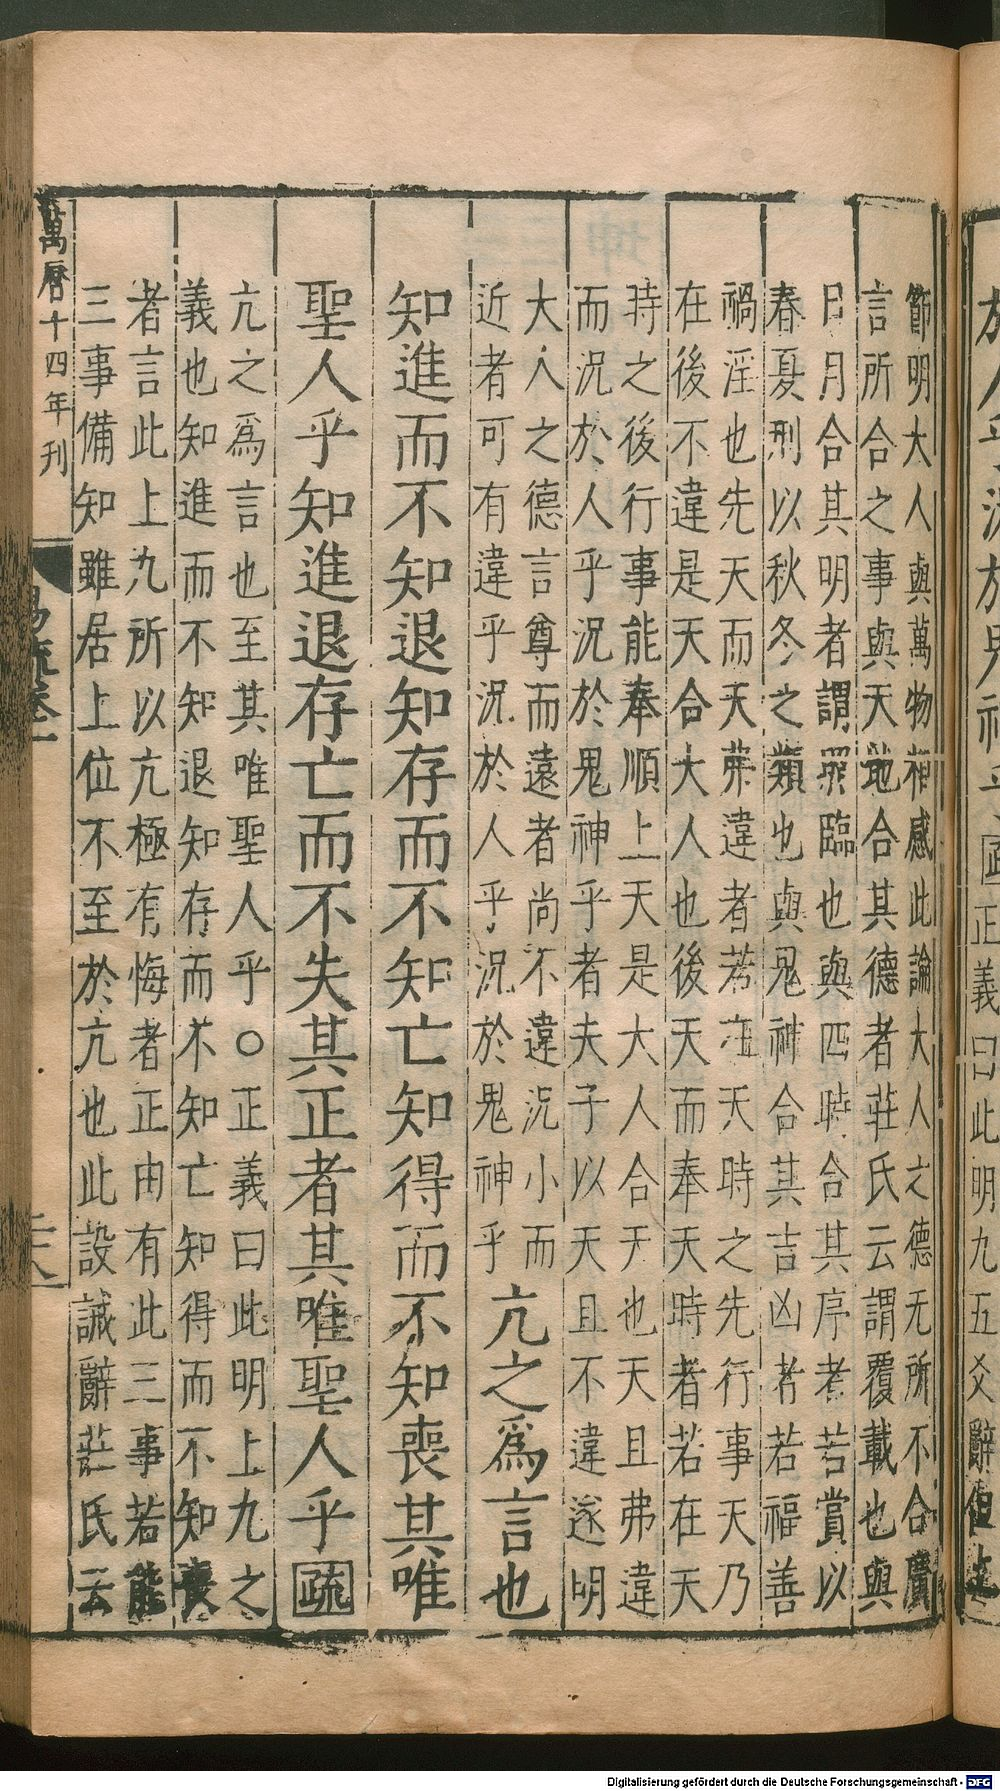 於人乎況於鬼神乎疏正義曰此明九五爻辭但上
節明大人與萬物相感此論大人之德无所不合廣
言所合之事與天地合其德者莊氏云謂覆載也與
日月合其明者謂照臨也與四時合其序者若賞以
春夏刑以秋冬之類也與鬼神合其吉凶者若福善
禍淫也先天而天弗違者若在天時之先行事天乃
在後不違是天合大人也後天而奉天時者若在天
時之後行事能奉順上天是大人合天也天且弗違
而況於人乎況於鬼神乎者夫子以天且不違遂明
大人之德言尊而遠者尚不違況小而
近者可有違乎況於人乎況於鬼神乎
亢之爲言也
知進而不知退知存而不知亡知得而不知喪其唯
聖人乎知進退存亡而不失其正者其唯聖人乎疏
亢之爲言也至其唯聖人乎○正義曰此明上九之
義也知進而不知退知存而不知亡知得而不知喪
者言此上九所以亢極有悔者正由有此三事若能
三事備知雖居上位不至於亢也此設誡辭莊氏云
萬曆十四年刊
易疏卷一
二十八
Digitalisierung gefördert durch die Deutsche Forschungsgemeinschaft - DFG